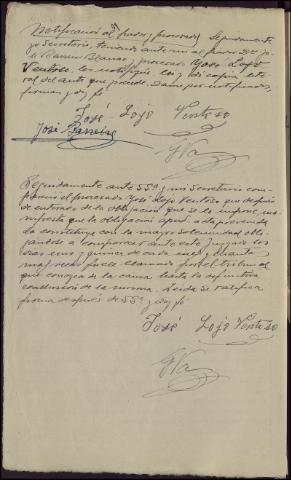 Notificación al fiador y procesado. Seguidamente
yo Secretario, teniendo ante mi al fiador
y procesado José Lojo
Ventoso, les notifiqué leí y dí copia lite
ral del auto que precede. Danse por notificados,
firman y doy fé
José Lojo Ventoso
José
Seguidamente ante SSª y mi Secretario com
pareció el procesado José Lojo Ventoso que después
de enterado de la obligación que se le impone, ma
nifiesta que la obligación apud acta prevenida
la constituye con la mayor solemnidad obli
gándose a comparecer ante este Juzgado los
días uno y quince de cada mes y cuantas
más veces fuere llamado por el tribunal
que conozca de la causa hasta la definitiva
conclusión de la misma. Leida se ratifica
firma después de SSª y doy fé
José Lojo Ventoso